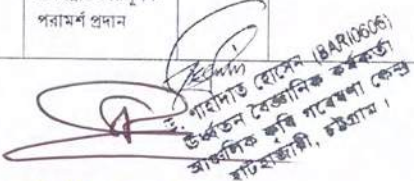 পরামর্শ প্রদান
ড. শাহাদাত হোসেন (BARI0606)
উর্ধ্বতন বৈজ্ঞানিক কর্মকর্তা
আঞ্চলিক কৃষি গবেষণা কেন্দ্র
হাটহাজারী, চট্টগ্রাম।